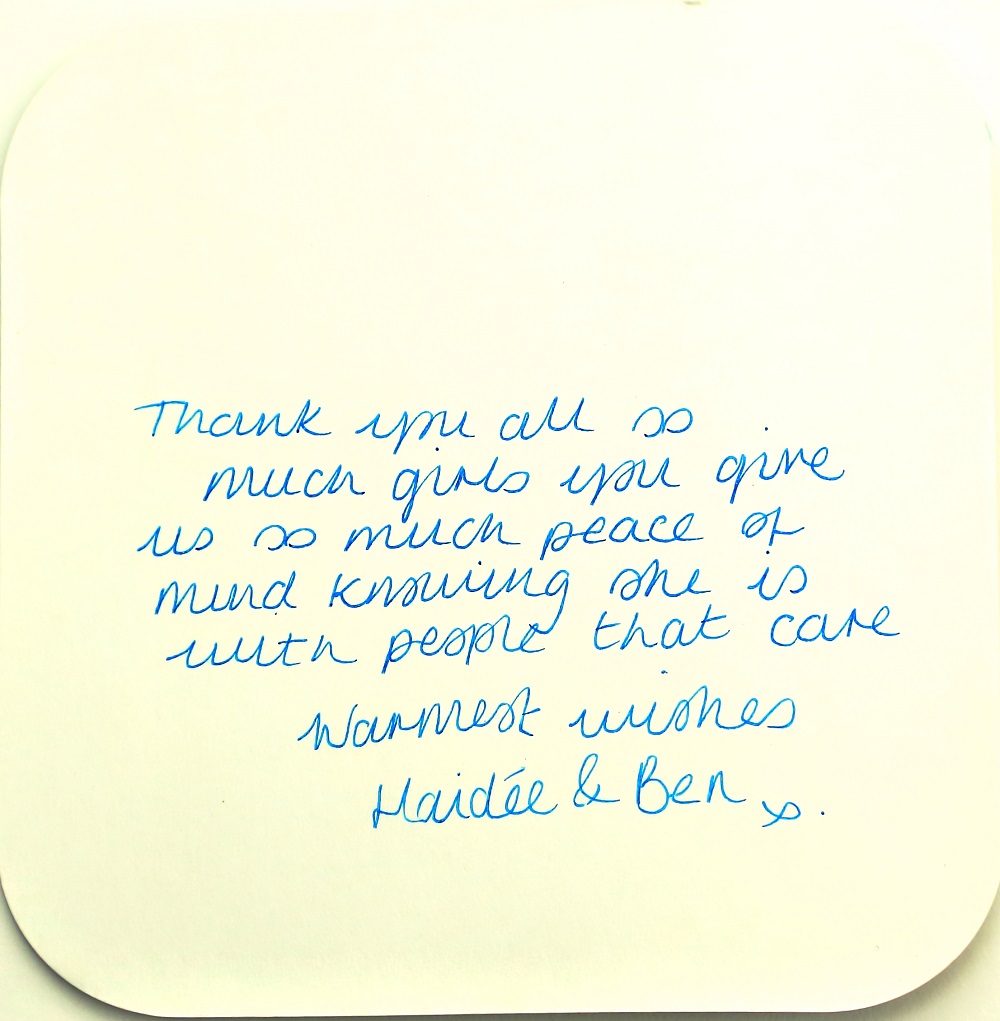 Thank you all so
much girls you give
us so much peace of
mind knowing she is
with people that care
Warmest wishes
Haidée & Ben x.